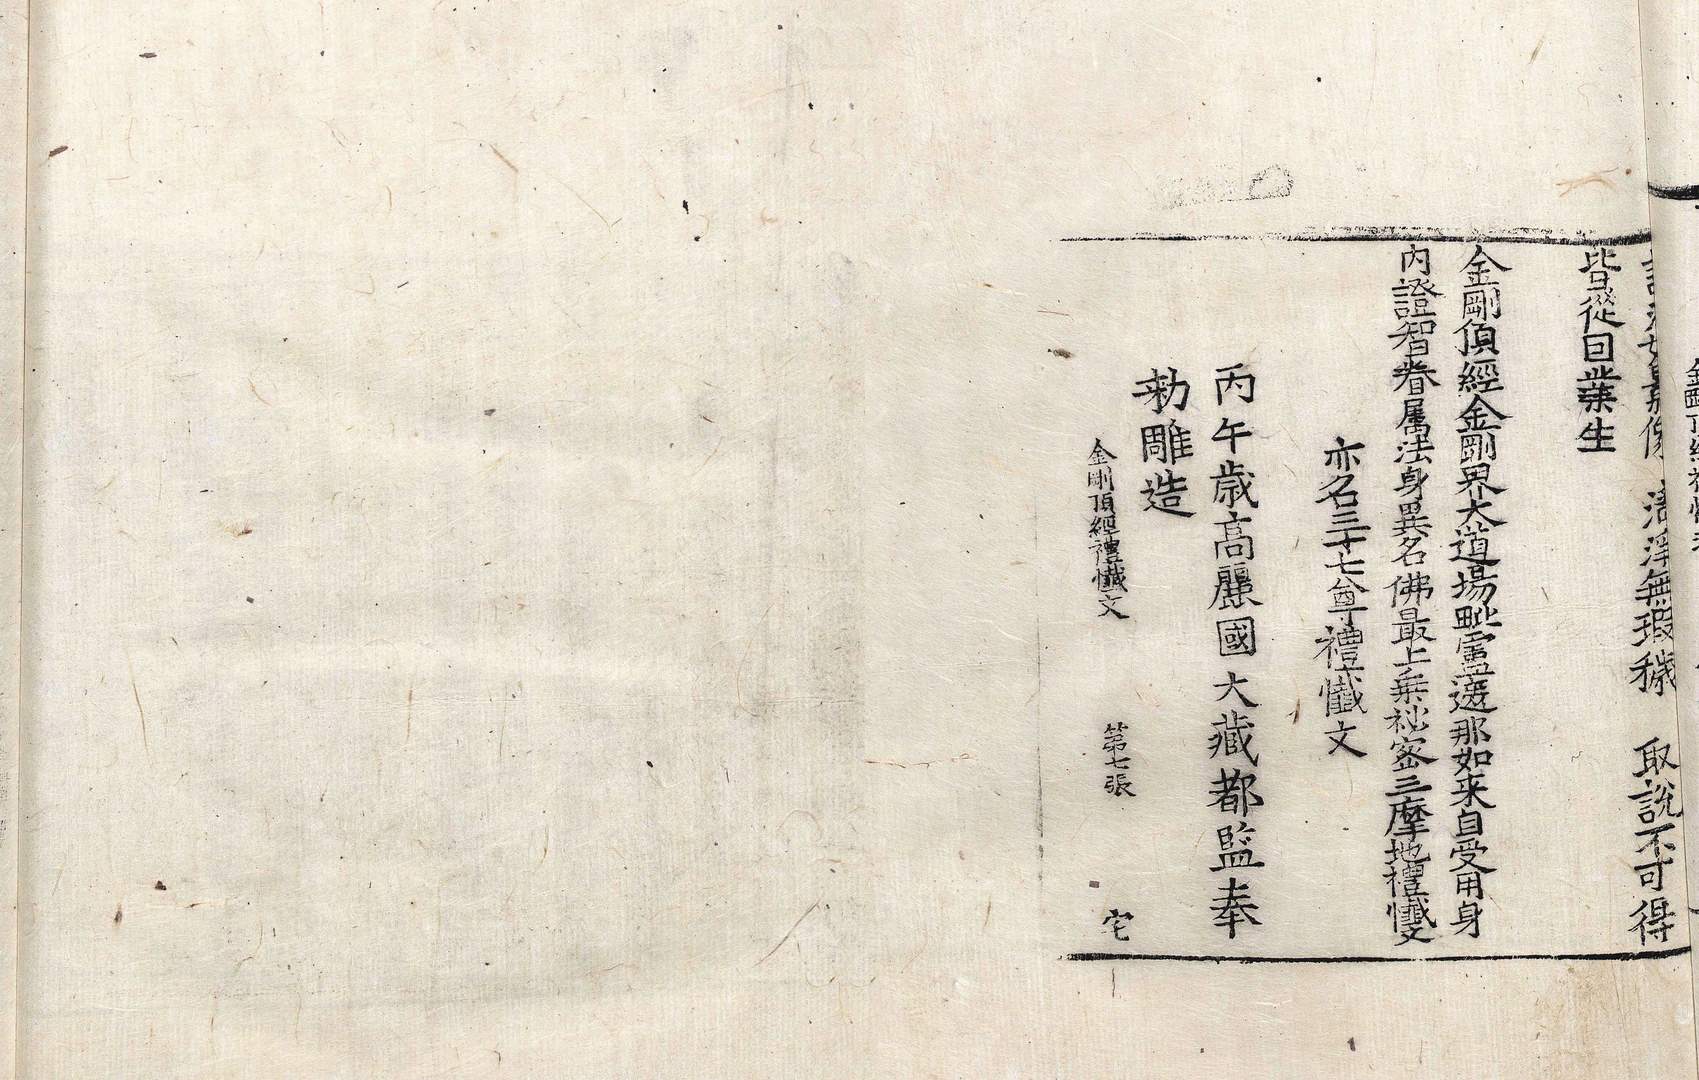 諸法如影像　清淨無瑕穢　取說不可得
皆從因業生
金剛頂經金剛界大道場毗盧遮那如来自受用身
內證智眷属法身異名佛最上乗祕密三摩地禮懺文
亦名三十七尊禮懺文
丙午歳高麗國大藏都監奉
勅雕造
金剛頂經禮懺文　第七張　宅